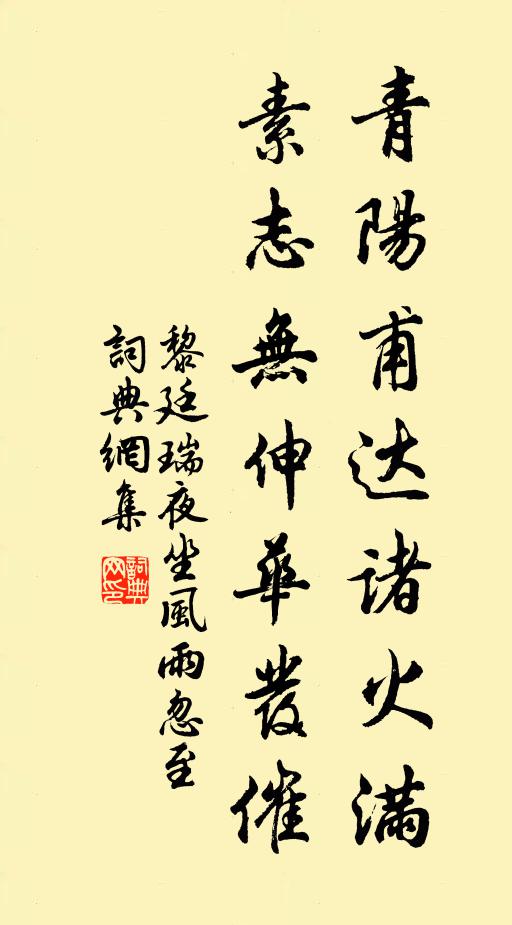 青陽甫达诸火满
素志無伸華發催
黎廷瑞夜坐風雨忽至
詞典網集
詞典网印